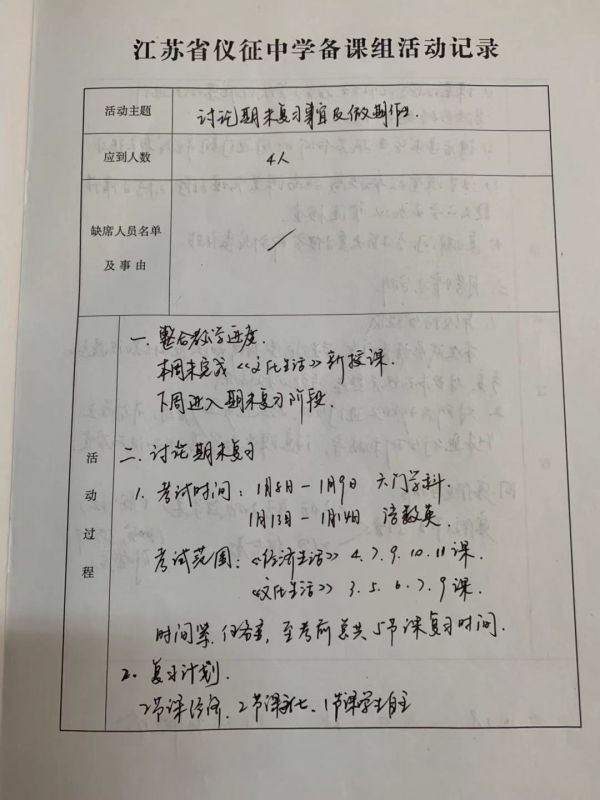 江苏省仪征中学备课组活动记录
活动主题
讨论期末复习事宜及假期作业.
应到人数
4人
缺席人员名单
及事由
活动过程
一. 整合教学进度.
本周末完成《文化生活》新授课.
下周进入期末复习阶段.
二. 讨论期末复习
1. 考试时间: 1月8日-1月9日 六门学科.
1月13日-1月14日 语数英.
考试范围:《经济生活》4.7.9.10.11课.
《文化生活》3.5.6.7.9课.
时间紧, 任务重, 至考前总共5节课复习时间.
2. 复习计划.
2节课经济, 2节课文化、1节课学生自主